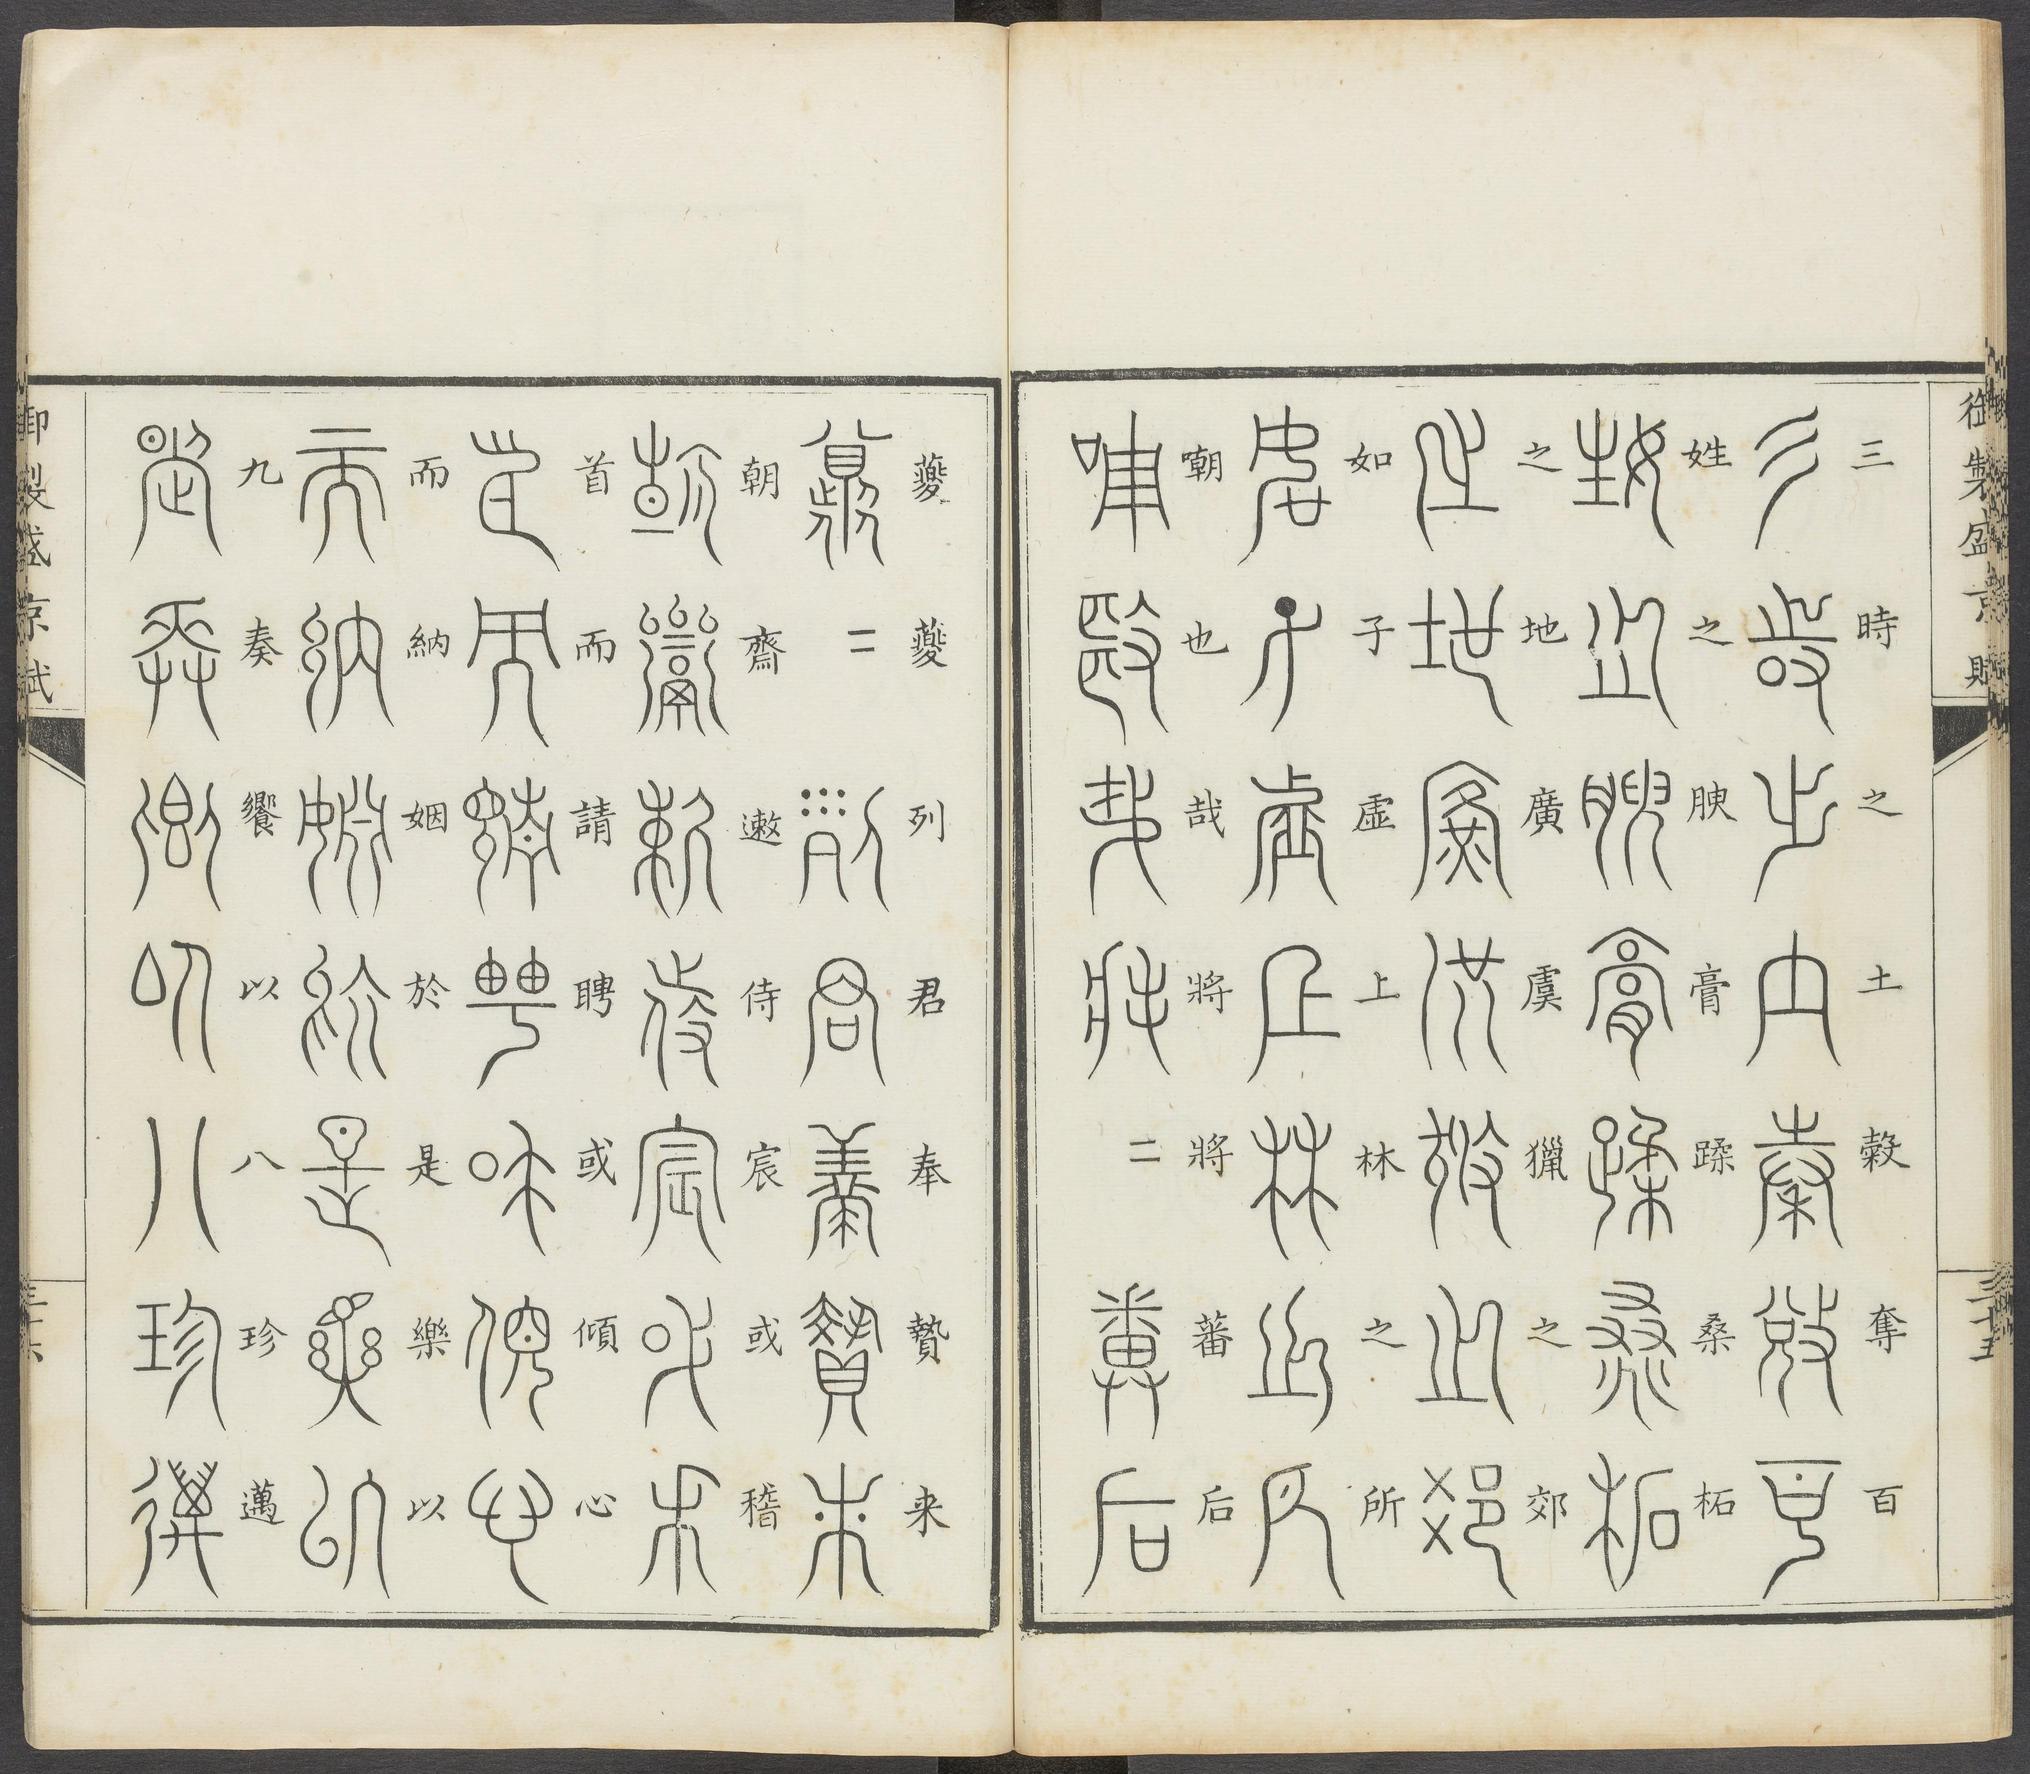 御製盛京賦
三時之土穀奪百
姓之腴膏蹂桑柘
之地廣虞獵之郊
如子虛上林之所
嘲也哉將將二蕃后
三十五
夔夔二列君奉贄来
朝齋遬侍宸或稽
首而請聘或傾心
而納姻於是樂以
九奏饗以八珍邁
御製盛京賦